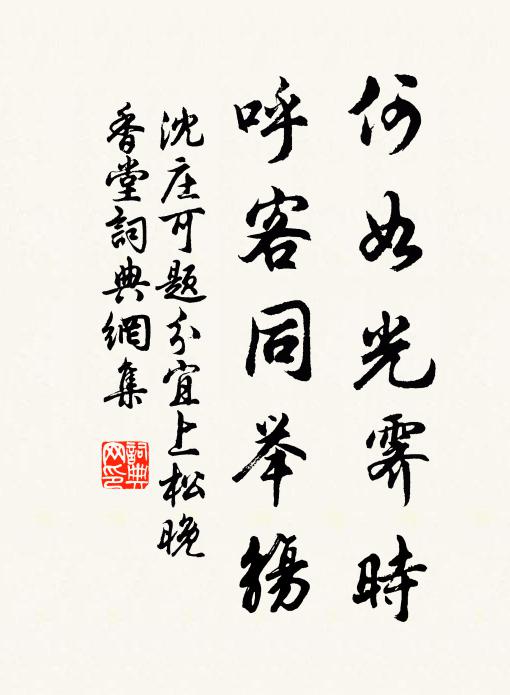 何如光霁時
呼客同举觴
沈庄可题分宜上松晚
香堂詞典網集
詞典网印